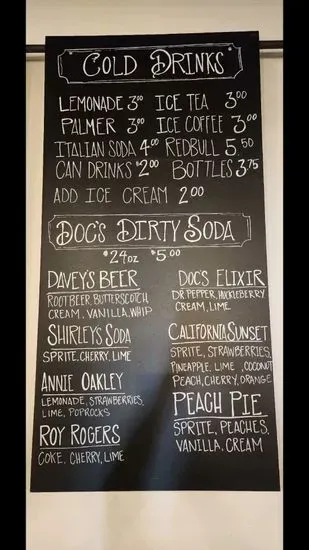 COLD DRINKS
LEMONADE 3⁰⁰ ICE TEA 3⁰⁰
PALMER 3⁰⁰ ICE COFFEE 3⁰⁰
ITALIAN SODA 4⁰⁰ REDBULL 5 50
CAN DRINKS $2⁰⁰ BOTTLES 3.75
ADD ICE CREAM 2.00
DOC'S DIRTY SODA
$24oz $5.00
DAVEY'S BEER
ROOTBEER, BUTTERSCOTCH
CREAM, VANILLA, WHIP
SHIRLEYS SODA
SPRITE, CHERRY, LIME
ANNIE OAKLEY
LEMONADE, STRAWBERRIES,
LIME, POPROCKS
ROY ROGERS
COKE, CHERRY, LIME
DOC'S ELIXIR
DR. PEPPER, HUCKLEBERRY
CREAM, LIME
CALIFORNIA SUNSET
SPRITE, STRAWBERRIES,
PINEAPPLE, LIME, COCONUT
PEACH, CHERRY, ORANGE
PEACH PIE
SPRITE, PEACHES,
VANILLA, CREAM